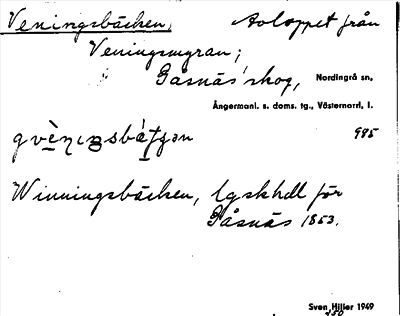 Veningsbäcken, Avloppet från
Veningsmyran;
Gåsnäs skog, Nordingrå sn,
Ångermanl. s. doms. tg., Västernorrl. l.
985
Winningsbäcken, lgskhdl för
Gåsnäs 1853.
Sven Hiller 1949